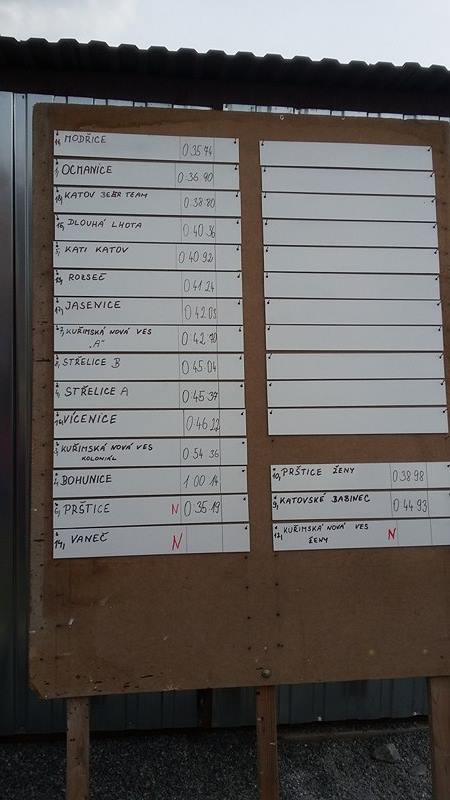 11, MODŘICE 0 35 74
1, OCMANICE 0 36 90
18, KATOV TEAM 0 38 80
15, DLOUHÁ LHOTA 0 40 36
5, KATI KATOV 0 40 92
ROZSEČ 0 41 24
17, JASENICE 0 42 03
7, KUŘIMSKÁ NOVÁ VES 0 42 70
„A“
STŘELICE B 0 45 04
STŘELICE A 0 45 37
VÍCENICE 0 46 22
3, KUŘIMSKÁ NOVÁ VES 0 54 36
KOLONIÁL
BOHUNICE 1 00 14
PRŠTICE N 0 35 19
14, VANEČ N
10, PRŠTICE ŽENY 0 38 98
9, KATOVSKÉ BABINEC 0 44 93
12, KUŘIMSKÁ NOVÁ VES N
ŽENY